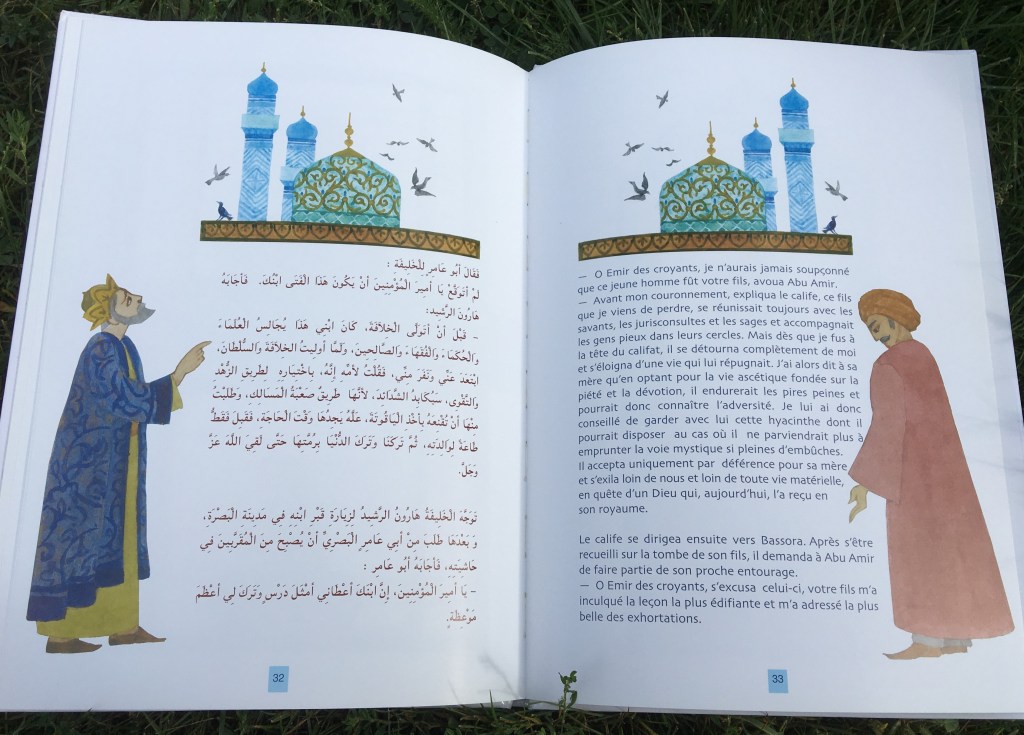 فَقَالَ أَبُو عَامِرٍ لِلْخَلِيفَةِ :
لَمْ أَتَوَقَّعْ يَا أَمِيرَ الْمُؤْمِنِينَ أَنْ يَكُونَ هَذَا الْفَتَى ابْنُكَ. فَأَجَابَهُ
هَارُونَ الرَّشِيد:
- قَبْلَ أَنْ أَتَوَلَّى الْخِلَافَةَ، كَانَ ابْنِي هَذَا يُجَالِسُ الْعُلَمَاءَ
وَالْحُكَمَاءَ وَالْفُقَهَاءَ وَالصَّالِحِينَ، وَلَمَّا أُولِيتُ الْخِلَافَةَ وَالسُّلْطَانَ،
ابْتَعَدَ عَنِّي وَنَفَرَ مِنِّي، فَقُلْتُ لأُمِّهِ إِنَّهُ بِاخْتِيَارِهِ لِطَرِيقِ الزُّهْدِ
وَالتَّقْوَى، سَيُكَابِدُ الشَّدَائِدَ، لأَنَّهَا طَرِيقٌ صَعْبَةُ الْمَسَالِكِ، وَطَلَبْتُ
مِنْهَا أَنْ تُقْنِعَهُ بِأَخْذِ الْيَاقُوتَةِ، عَلَّهُ يَجِدُهَا وَقْتَ الْحَاجَةِ، فَقَبِلَ فَقَطْ
طَاعَةً لِوَالِدَتِهِ، ثُمَّ تَرَكَنَا وَتَرَكَ الدُّنْيَا بِرُمَّتِهَا حَتَّى لَقِيَ اللَّهَ عَزَّ
وَجَلَّ.
تَوَجَّهَ الْخَلِيفَةُ هَارُونُ الرَّشِيدُ لِزِيَارَةِ قَبْرِ ابْنِهِ فِي مَدِينَةِ الْبَصْرَةِ،
وَ بَعْدَهَا طَلَبَ مِنْ أَبِي عَامِرٍ الْبَصْرِيِّ أَنْ يُصْبِحَ مِنَ الْمُقَرَّبِينَ فِي
حَاشِيَتِهِ، فَأَجَابَهُ أَبُو عَامِرٍ :
- يَا أَمِيرَ الْمُؤْمِنِينَ، إِنَّ ابْنَكَ أَعْطَانِي أَمْثَلَ دَرْسٍ وَتَرَكَ لِي أَعْظَمَ
مَوْعِظَةٍ.
32
— O Emir des croyants, je n'aurais jamais soupçonné
que ce jeune homme fût votre fils, avoua Abu Amir.
— Avant mon couronnement, expliqua le calife, ce fils
que je viens de perdre, se réunissait toujours avec les
savants, les jurisconsultes et les sages et accompagnait
les gens pieux dans leurs cercles. Mais dès que je fus à
la tête du califat, il se détourna complètement de moi
et s'éloigna d'une vie qui lui répugnait. J'ai alors dit à sa
mère qu'en optant pour la vie ascétique fondée sur la
piété et la dévotion, il endurerait les pires peines et
pourrait donc connaître l'adversité. Je lui ai donc
conseillé de garder avec lui cette hyacinthe dont il
pourrait disposer au cas où il ne parviendrait plus à
emprunter la voie mystique si pleines d'embûches.
Il accepta uniquement par déférence pour sa mère
et s'exila loin de nous et loin de toute vie matérielle,
en quête d'un Dieu qui, aujourd'hui, l'a reçu en
son royaume.
Le calife se dirigea ensuite vers Bassora. Après s'être
recueilli sur la tombe de son fils, il demanda à Abu Amir
de faire partie de son proche entourage.
— O Emir des croyants, s'excusa celui-ci, votre fils m'a
inculqué la leçon la plus édifiante et m'a adressé la plus
belle des exhortations.
33